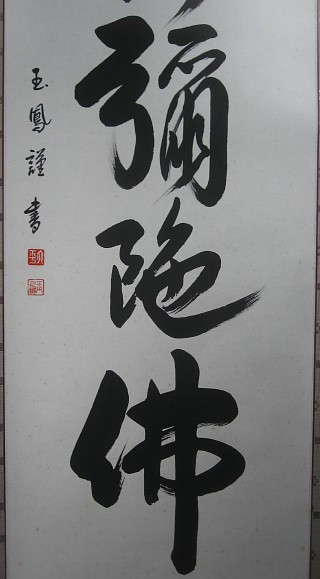 彌陀佛
玉鳳謹書